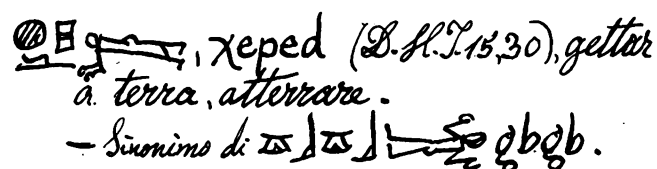 𓐍𓊪𓂧, χeped (D.H.J.15,30), gettar
a terra, atterrare.
— Sinonimo di 𓎼𓃀𓎼𓃀 gbgb.